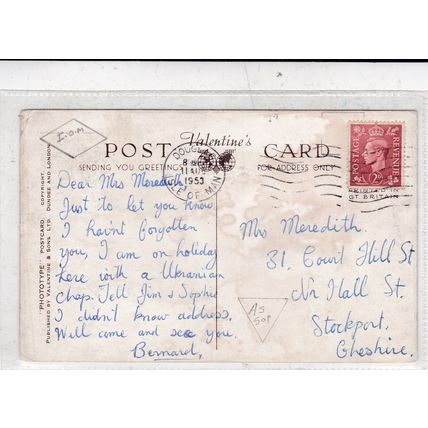 I.O.M
POST Valentine's CARD
SENDING YOU GREETINGS FOR ADDRESS ONLY
DOUGLAS
1953
ISLE OF MAN
POSTAGE REVENUE
2D
PRINTED IN
GT BRITAIN
"PHOTOTYPE" POSTCARD COPYRIGHT.
PUBLISHED BY VALENTINE & SONS, LTD. DUNDEE AND LONDON
Dear Mrs Meredith
Just to let you know
I havn't forgotten
you, I am on holiday
here with a Ukranian
chap. Tell Jim & Sophie
I didn't know address.
Will come and see you.
Bernard,
Mrs Meredith.
31, Court Hill St
Nr Hall St.
Stockport.
Cheshire.
AS
50P